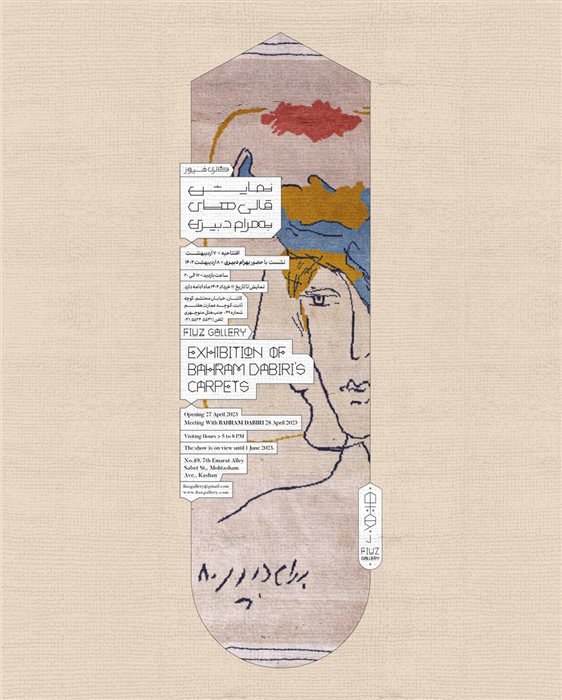 گالری فیوز
نمایش
قالی های
بهرام دبیری
افتتاحیه > ۷ اردیبهشت
نشست با حضور بهرام دبیری > ۸ اردیبهشت ۱۴۰۲
ساعت بازدید > ۱۷ الی ۲۰
نمایش تا تاریخ ۱۱ خرداد ماه ۱۴۰۲ ادامه دارد.
کاشان، خیابان محتشم، کوچه
ثابت، کوچه عمارت هفتم
شماره ۴۹، جنب هتل منوچهری
FIUZ GALLERY
EXHIBITION OF
BAHRAM DABIRI'S
CARPETS
Opening 27 April 2023
Meeting With BAHRAM DABIRI 28 April 2023
Visiting Hours > 5 to 8 PM
The show is on view until 1 June 2023.
No.49, 7th Emarat Alley
Sabet St., Mohtasham
Ave., Kashan
fiuzgallery@gmail.com
www.fiuzgallery.com
FIUZ
GALLERY
بهرام دبیری ۸۰